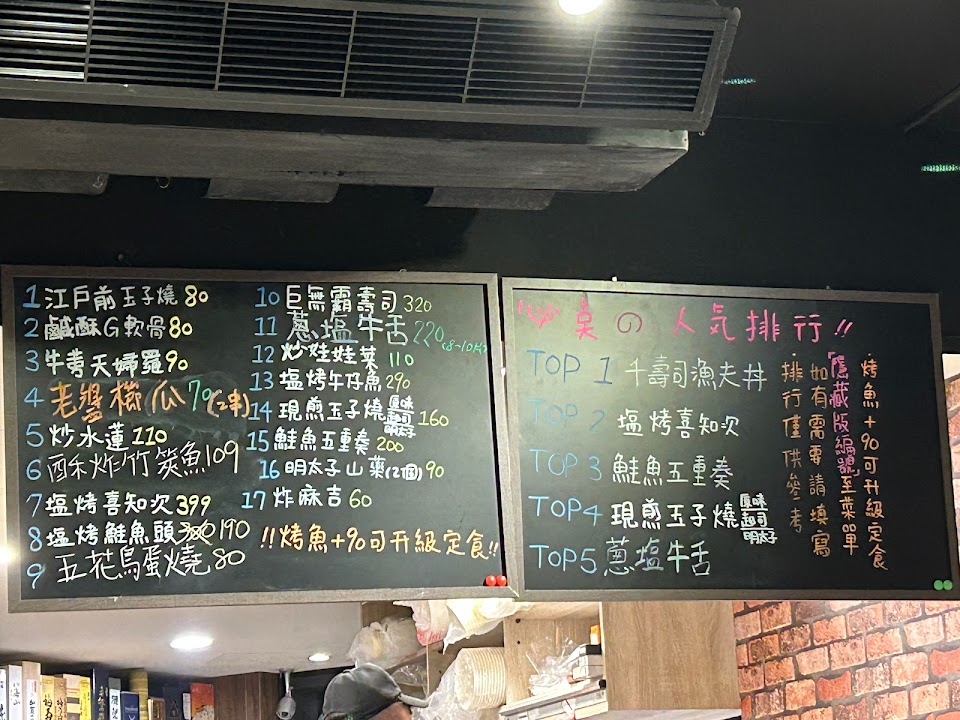 1 江戶前玉子燒 80
2 鹹酥G軟骨 80
3 牛蒡天婦羅 90
4 老婆機瓜 70 (2串)
5 炒水蓮 110
6 酥炸竹筴魚 109
7 塩烤喜知次 399
8 塩烤鮭魚頭 190
9 五花鳥蛋燒 80
10 巨無霸壽司 320
11 蔥塩牛舌 220 (8~10片)
12 炒娃娃菜 110
13 塩烤午仔魚 290
14 現煎玉子燒 原味 起司 明太子 160
15 鮭魚五重奏 200
16 明太子山藥(2個) 90
17 炸麻吉 60
!!烤魚+90可升級定食!!
桌の人気排行!!
TOP 1 千壽司漁夫丼
TOP 2 塩烤喜知次
TOP 3 鮭魚五重奏
TOP4 現煎玉子燒 原味 起司 明太子
TOP5 蔥塩牛舌
·烤魚+90可升級定食
·如有需要請填寫
「隱藏版編號」至菜單
·排行僅供參考